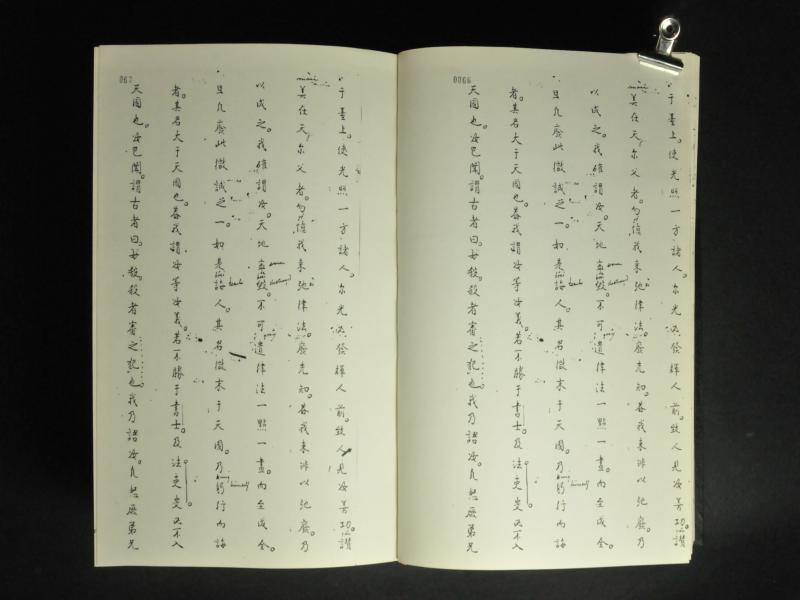 0066
于臺上。使光照一方諸人。尔光必發輝人前。致人見汝芳功。讚
美在天尔父者。勿憶我来弛律法。廢先知。葢我来非以弛廢。乃
以成之。我確謂汝。天地毀。不可遺律法一點一畫。而至成全。
且凡廢此微誡之一。如是誨人。其名微末于天國。乃躬行而誨
者。其名大于天國也。葢我謂汝等汝義。若不勝于書士。及法必不入
天國也。汝已聞。謂古者曰。毋殺。殺者審之記也。我乃語汝。凡怒厥弟兄
于臺上。使光照一方諸人。尔光必發輝人前。致人見汝芳功。讚
美在天尔父者。勿憶我来弛律法。廢先知。葢我来非以弛廢。乃
以成之。我確謂汝。天地毀。不可遺律法一點一畫。而至成全。
且凡廢此微誡之一。如是誨人。其名微末于天國。乃躬行而誨
者。其名大于天國也。葢我謂汝等汝義。若不勝于書士。及法必不入
天國也。汝已聞。謂古者曰。毋殺。殺者審之記也。我乃語汝。凡怒厥弟兄